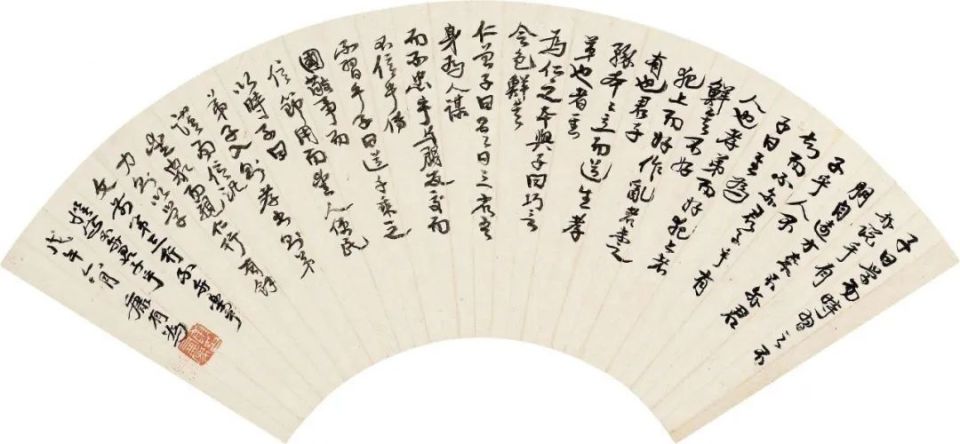 子曰學而時習之不
亦說乎有
朋自遠方來不亦君
子乎人不
知而不亦君子乎有
子曰其為
人也孝弟而好犯上者
鮮矣不好
犯上而好作亂者未之
有也君子
務本本立而道生孝
弟也者其
為仁之本與子曰巧言
令色鮮矣
仁曾子曰吾日三省吾
身為人謀
而不忠乎與朋友交而
不信乎傳
不習乎子曰道千乘之
國敬事而
信節用而愛人使民
以時子曰
弟子入則孝出則弟
謹而信汎
愛衆而親仁行有餘
力則以學
文
戊午八月 康有為